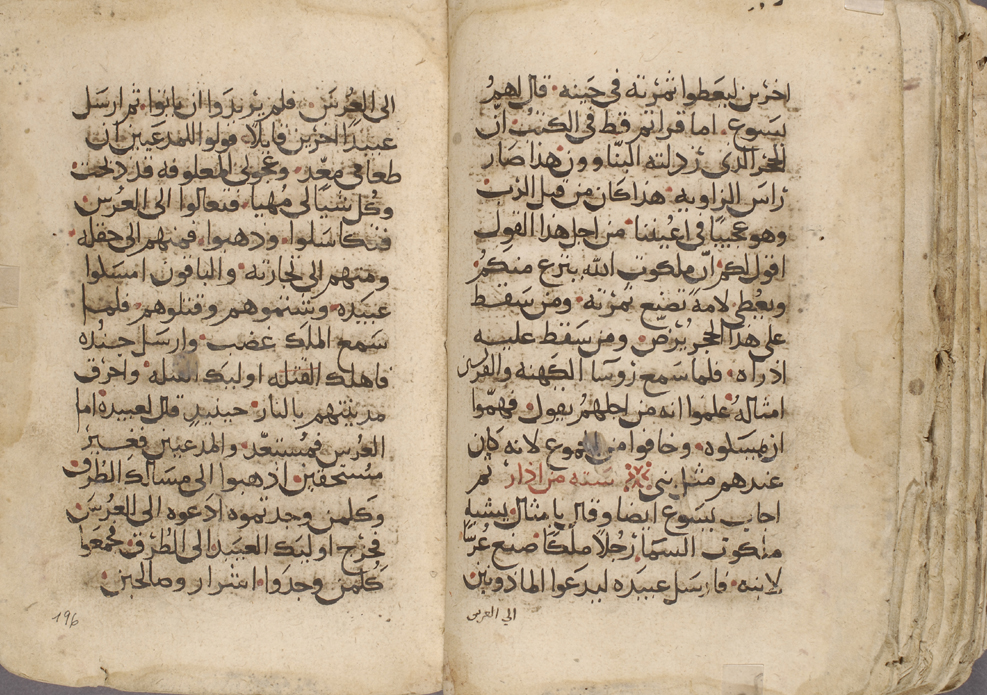 اخرين ليعطوا ثمرته في حينه قال لهم
يسوع اما قراتم قط في الكتب ان
الحجر الذي رذلته البناوون هذا صار
راس الزاوية هذا كان من قبل الرب
وهو عجيبا في اعيننا من اجل هذا القول
اقول لكم ان ملكوت الله ينزع منكم
ويعطى لامة تصنع ثمرته ومن سقط
على هذا الحجر يرض ومن سقط عليه
اذراه فلما سمع روسا الكهنه والفريس
امثاله علموا انه من اجلهم يقول فهموا
ان يمسكوه وخافوا من الجموع لانه كان
عندهم مثل نبي سته من اذار ثم
اجاب يسوع ايضا وقال بامثال يشبه
ملكوت السما رجلا ملكا صنع عرسا
لابنه فارسل عبيده ليدعوا الماذونين
الي العرس
الى العرس فلم يريدوا ان ياتوا ثم ارسل
عبيدا اخرين قايلا قولوا للمدعيين ان
طعامي معد وعجولي المعلوفه قد ذبحت
وكل شيا لي مهيا فتعالوا الى العرس
فتكاسلوا وذهبوا فمنهم الى حقله
ومنهم الى تجارته والباقون امسكوا
عبيده وشتموهم وقتلوهم فلما
سمع الملك غضب وارسل جنده
فاهلك القتله اوليك القتله واحرق
مدينتهم بالنار حينيذ قال لعبيده اما
العرس فمستعد والمدعيين فغير
مستحقين اذهبوا الى مسالك الطرق
وكلمن وجدتموه ادعوه الى العرس
فخرج اوليك العبيد الى الطرق فجمعوا
كلمن وجدوا اشرار وصالحين
196